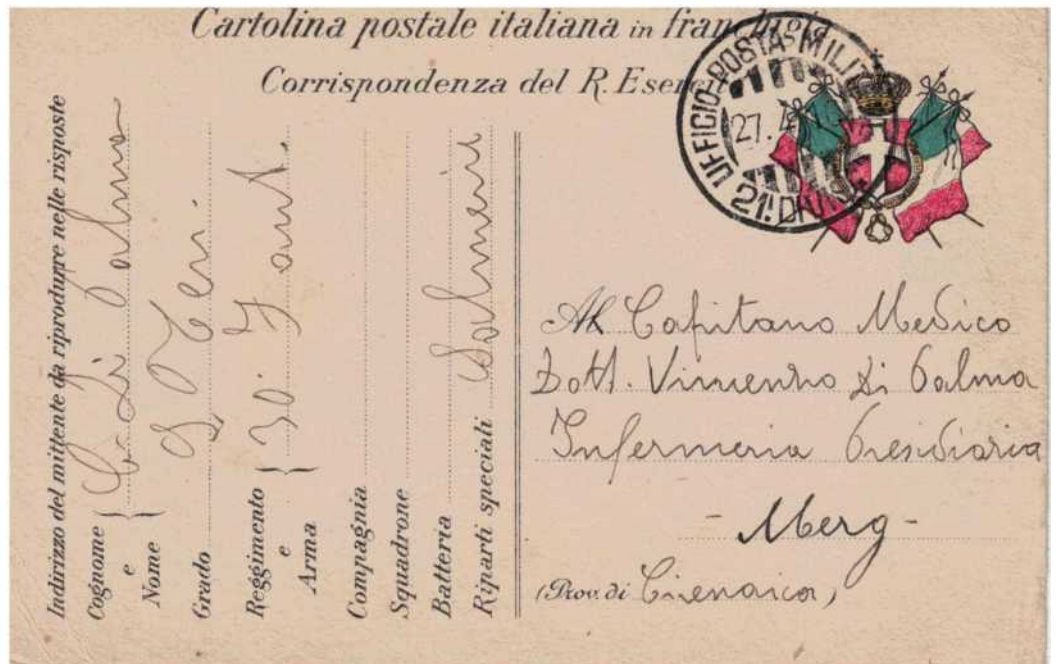 Cartolina postale italiana in franchigia
Corrispondenza del R. Esercito
UFFICIO POSTA MILIT
27. 4
21ª DIVIS
Indirizzo del mittente da riprodurre nelle risposte
Cognome e Nome Di Palma
Grado S. Ten.
Reggimento e Arma 30. Fant.
Compagnia
Squadrone
Batteria
Riparti speciali Salmerie
Al Capitano Medico
Dott. Vincenzo Di Palma
Infermeria Presidiaria
- Merg -
(Prov. di Cirenaica)